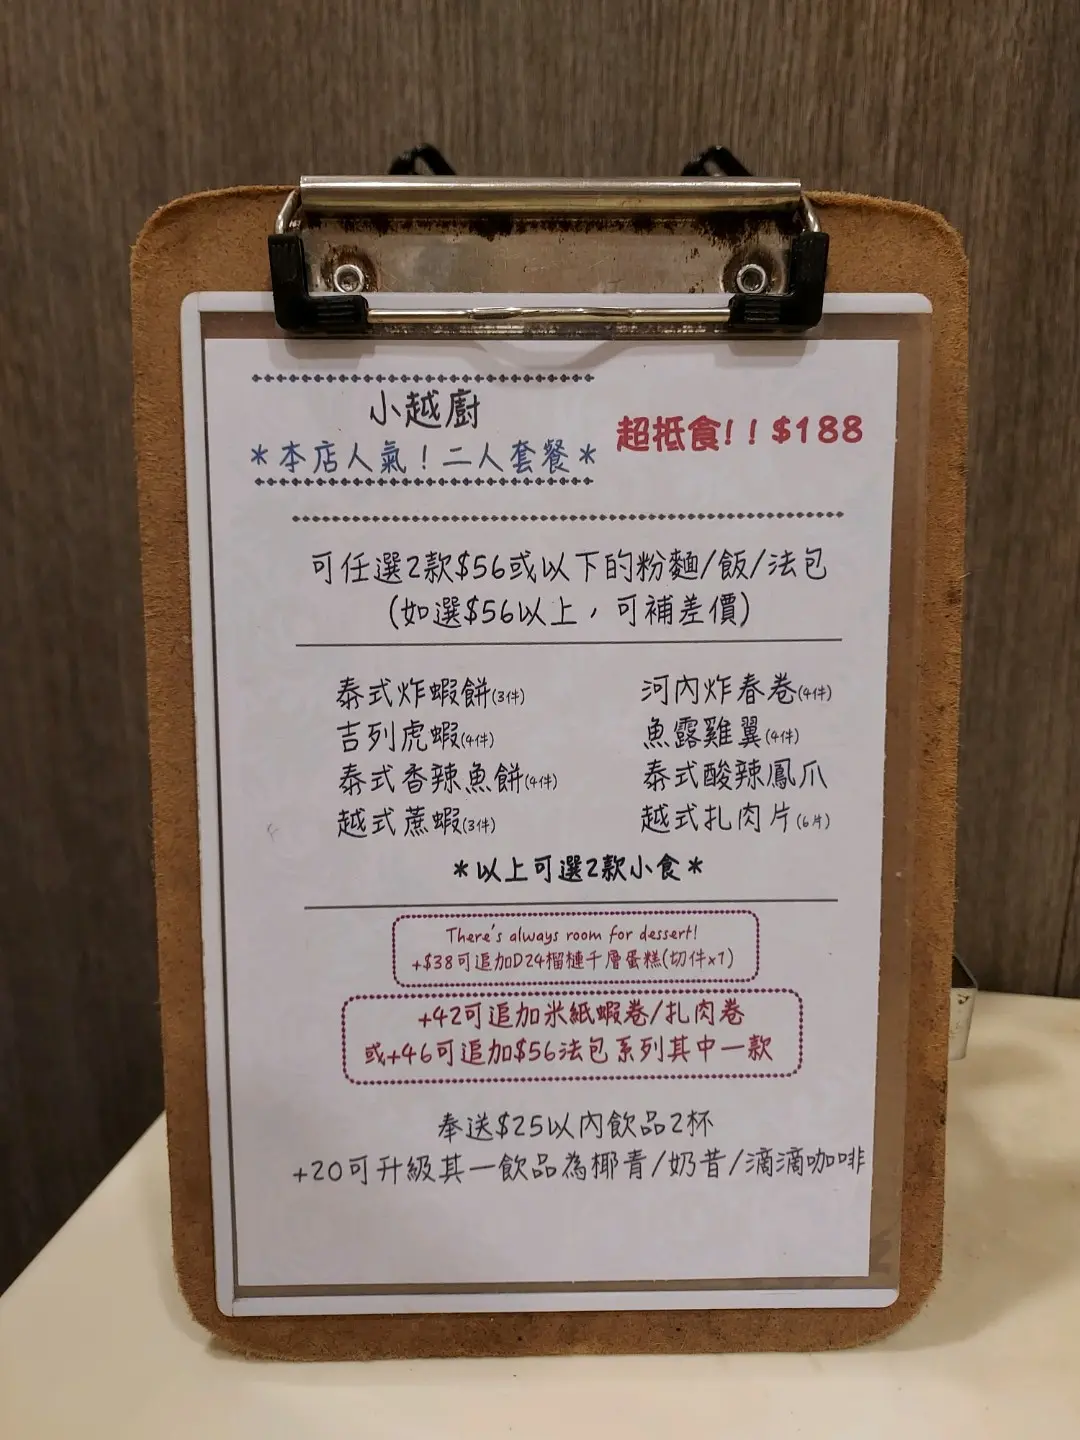 小越廚
*本店人氣！二人套餐*
超抵食!!$188
可任選2款$56或以下的粉麵/飯/法包
(如選$56以上，可補差價)
泰式炸蝦餅(3件)
河內炸春卷(4件)
吉列虎蝦(4件)
魚露雞翼(4件)
泰式香辣魚餅(4件)
泰式酸辣鳳爪
越式蔗蝦(3件)
越式扎肉片(6片)
*以上可選2款小食*
There's always room for dessert!
+$38可追加D24榴槤千層蛋糕(切件x1)
+42可追加米紙蝦卷/扎肉卷
或+46可追加$56法包系列其中一款
奉送$25以內飲品2杯
+20可升級其一飲品為椰青/奶昔/滴滴咖啡